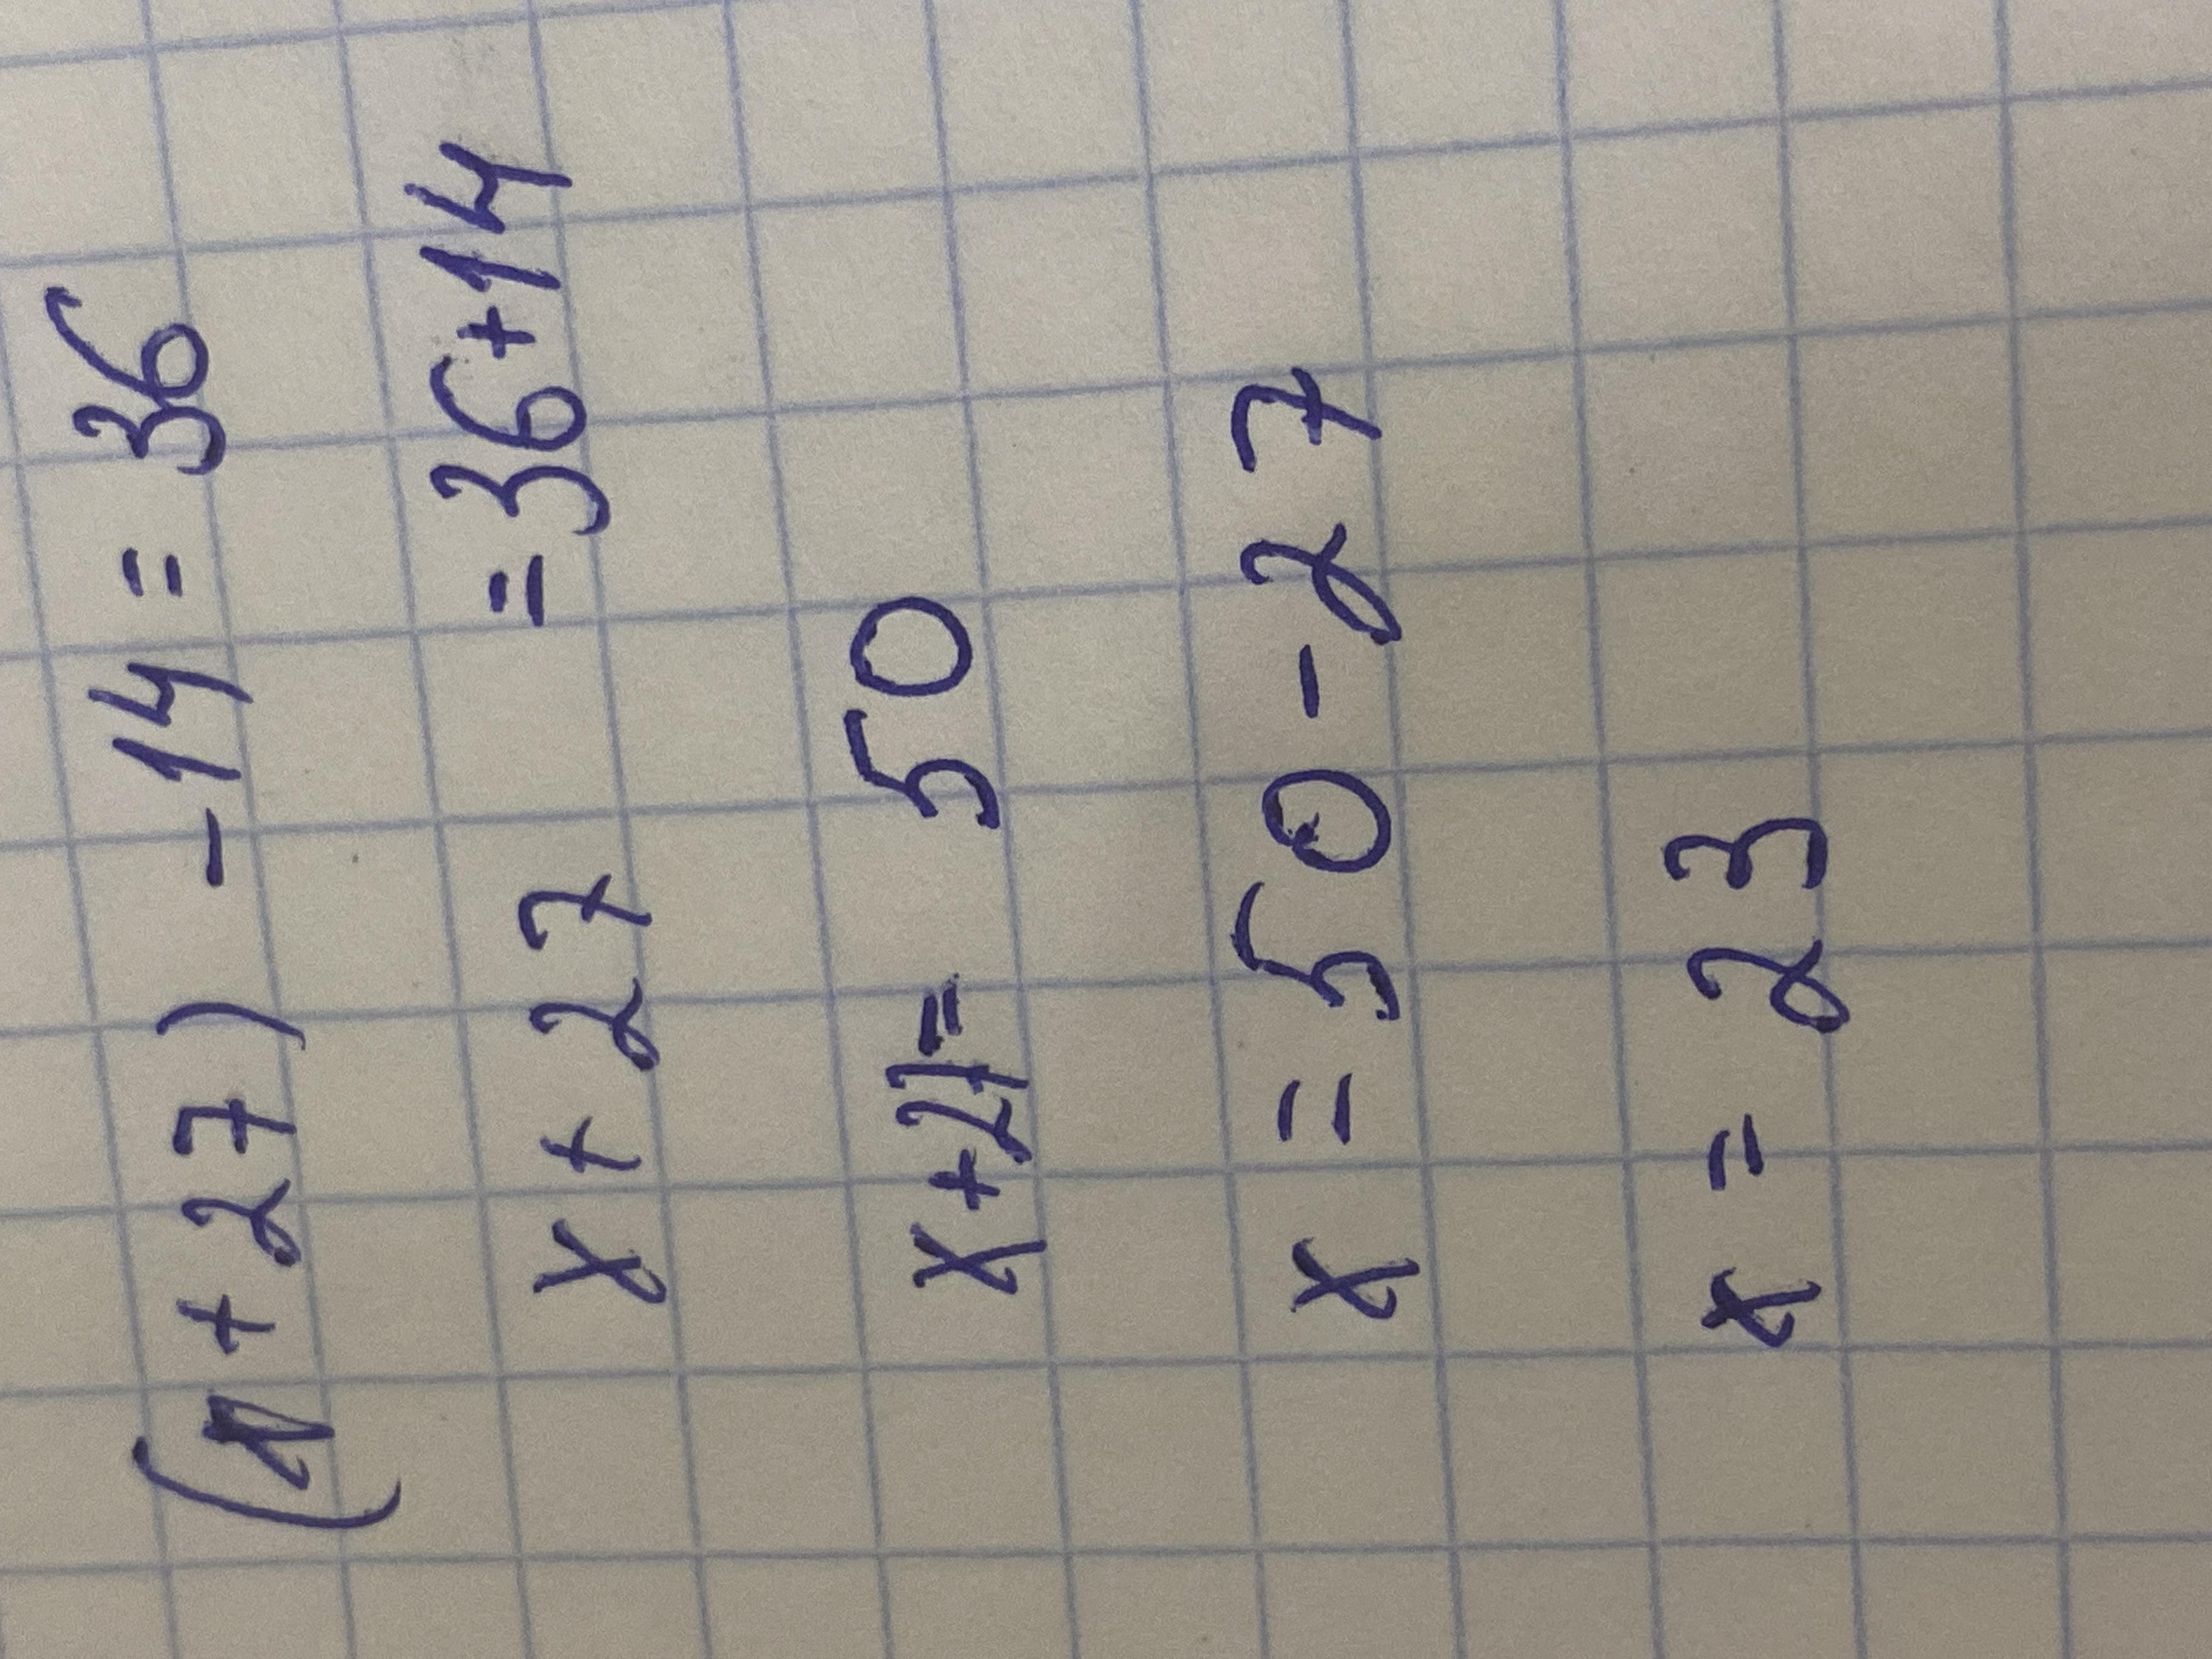 (x + 27) - 14 = 36
x + 27 = 36 + 14
x + 27 = 50
x = 50 - 27
x = 23